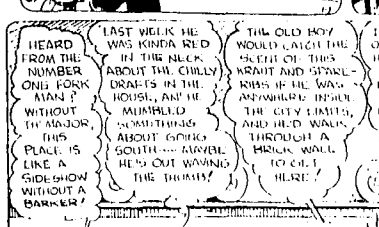 HEARD
FROM THE
NUMBER
ONE FORK
MAN?
WITHOUT
TH' MAJOR,
THIS
PLACE IS
LIKE A
SIDESHOW
WITHOUT A
BARKER!
LAST WEEK HE
WAS KINDA RED
IN THE NECK
ABOUT TH' CHILLY
DRAFTS IN THE
HOUSE, AN' HE
MUMBLED
SOMETHING
ABOUT GOING
SOUTH---- MAYBE
HE'S OUT WAVING
THE THUMB!
THE OLD BOY
WOULD CATCH THE
SCENT OF THIS
KRAUT AND SPARE-
RIBS IF HE WAS
ANYWHERE INSIDE
THE CITY LIMITS,
AND HE'D WALK
THROUGH A
BRICK WALL
TO GET
HERE!